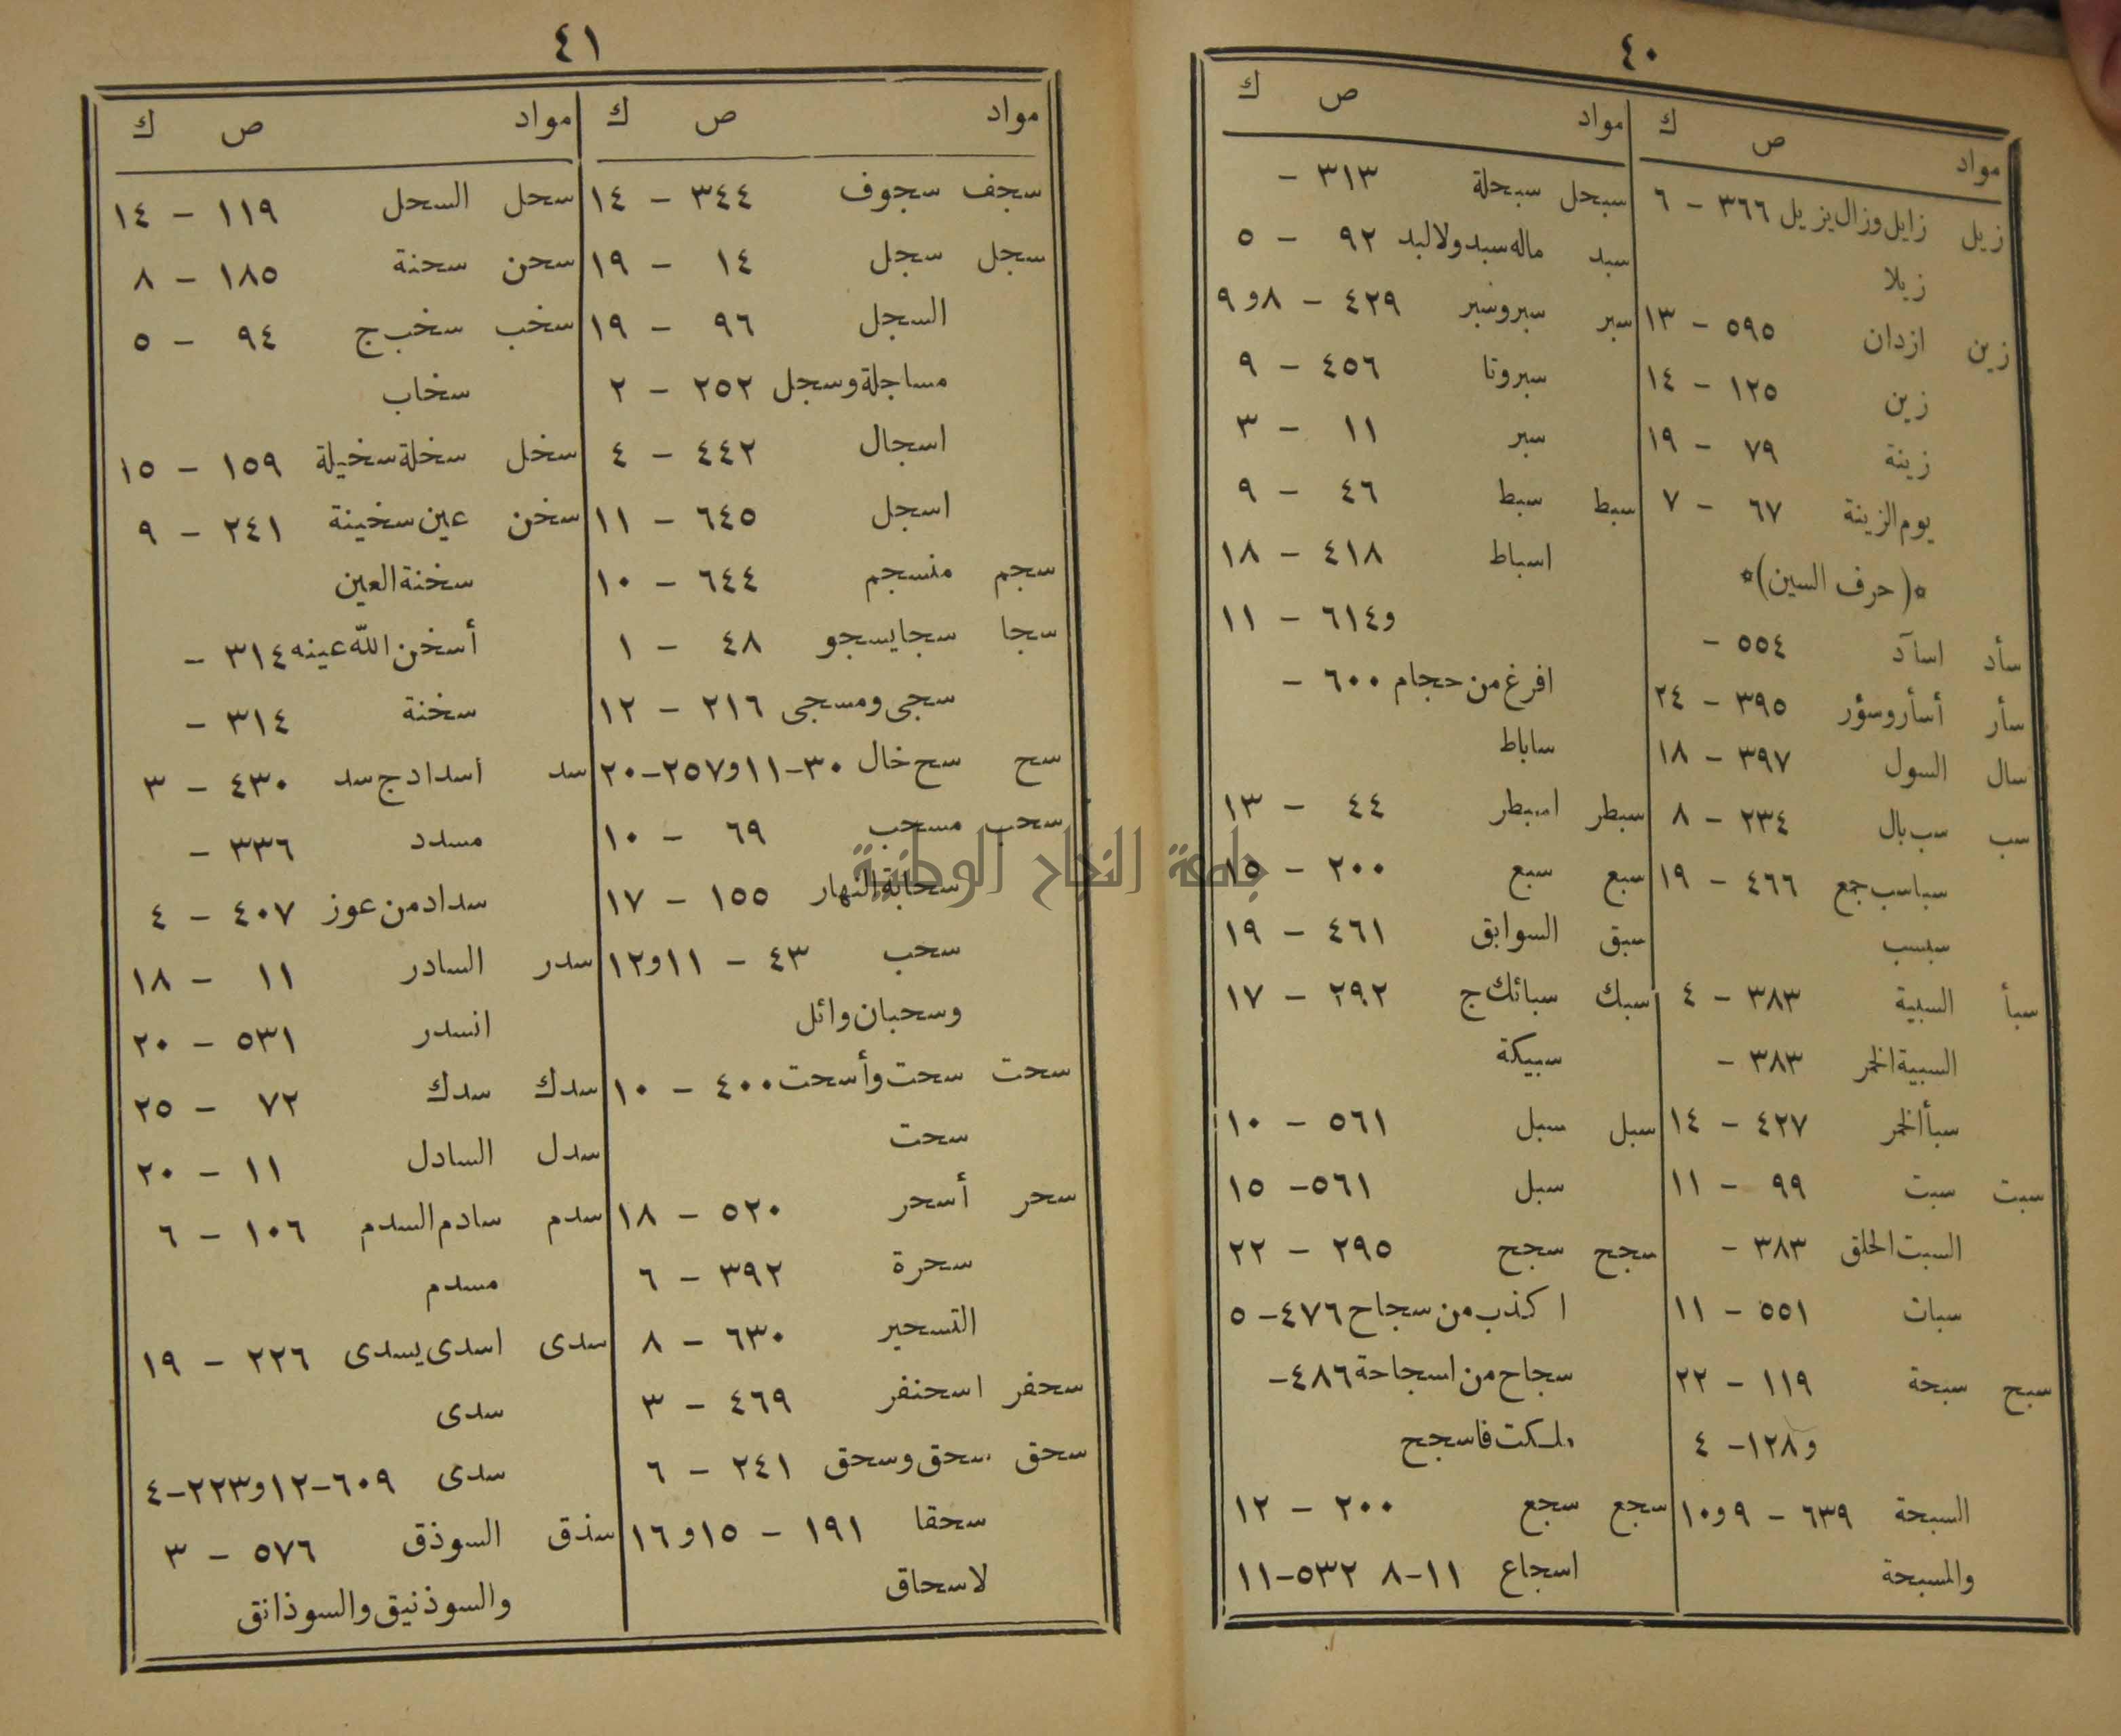 ٤٠
مواد ص ك
زيل زايل وزال يزيل ٣٦٦ - ٦
زيلا
زين ازدان ٥٩٥ - ١٣
زين ١٢٥ - ١٤
زينة ٧٩ - ١٩
يوم الزينة ٦٧ - ٧
*(حرف السين)*
سأد اسآد ٥٥٤ -
سأر أسأر وسؤر ٣٩٥ - ٢٤
سال السول ٣٩٧ - ١٨
سب سب بال ٢٣٤ - ٨
سباسب جمع ٤٦٦ - ١٩
سبسب
سبأ السبية ٣٨٣ - ٤
السبية الخمر ٣٨٣ -
سبأ الخمر ٤٢٧ - ١٤
سبت سبت ٩٩ - ١١
السبت الحلق ٣٨٣ -
سبات ٥٥١ - ١١
سبح سبحة ١١٩ - ٢٢
و١٢٨ - ٤
السبحة ٦٣٩ - ٩و١٠
والمسبحة
مواد ص ك
سبحل سبحلة ٣١٣ -
سبد ماله سبد ولا لبد ٩٢ - ٥
سبر سبر وسبر ٤٢٩ - ٨و٩
سبروتا ٤٥٦ - ٩
سبر ١١ - ٣
سبط سبط ٤٦ - ٩
اسباط ٤١٨ - ١٨
و٦١٤ - ١١
افرغ من حجام ٦٠٠ -
ساباط
سبطر اسبطر ٤٤ - ١٣
سبع سبع ٢٠٠ - ١٥
سبق السوابق ٤٦١ - ١٩
سبك سبائك ج ٢٩٢ - ١٧
سبيكة
سبل سبل ٥٦١ - ١٠
سبل ٥٦١ - ١٥
سجح سجح ٢٩٥ - ٢٢
اكذب من سجاح ٤٧٦ - ٥
سجاح من اسجاحة ٤٨٦ -
ملكت فاسجح
سجع سجع ٢٠٠ - ١٢
اسجاع ١١-٨ ٥٣٢-١١
٤١
مواد ص ك
سجف سجوف ٣٤٤ - ١٤
سجل سجل ١٤ - ١٩
السجل ٩٦ - ١٩
مساجلة وسجل ٢٥٢ - ٢
اسجال ٤٤٢ - ٤
اسجل ٦٤٥ - ١١
سجم منسجم ٦٤٤ - ١٠
سجا سجا يسجو ٤٨ - ١
سجى ومسجى ٢١٦ - ١٢
سح سح خال ٣٠-١١و٢٥٧-٢٠
سحب مسحب ٦٩ - ١٠
سحابة النهار ١٥٥ - ١٧
سحب ٤٣ - ١١و١٢
وسحبان وائل
سحت سحت وأسحت ٤٠٠ - ١٠
سحت
سحر أسحر ٥٢٠ - ١٨
سحرة ٣٩٢ - ٦
التسحير ٦٣٠ - ٨
سحفر اسحنفر ٤٦٩ - ٣
سحق سحق وسحق ٢٤١ - ٦
سحقا ١٩١ - ١٥و١٦
لاسحاق
مواد ص ك
سحل السحل ١١٩ - ١٤
سحن سحنة ١٨٥ - ٨
سخب سخب ج ٩٤ - ٥
سخاب
سخل سخلة سخيلة ١٥٩ - ١٥
سخن عين سخينة ٢٤١ - ٩
سخنة العين
أسخن الله عينه ٣١٤ -
سخنة ٣١٤ -
سد اسداد ج سد ٤٣٠ - ٣
مسدد ٣٣٦ -
سداد من عوز ٤٠٧ - ٤
سدر السادر ١١ - ١٨
انسدر ٥٣١ - ٢٠
سدك سدك ٧٢ - ٢٥
سدل السادل ١١ - ٢٠
سدم سادم السدم ١٠٦ - ٦
مسدم
سدى اسدى يسدى ٢٢٦ - ١٩
سدى
سدى ٦٠٩-١٢و٢٢٣-٤
سذق السوذق ٥٧٦ - ٣
والسوذنيق والسوذانق
جامعة النجاح الوطنية